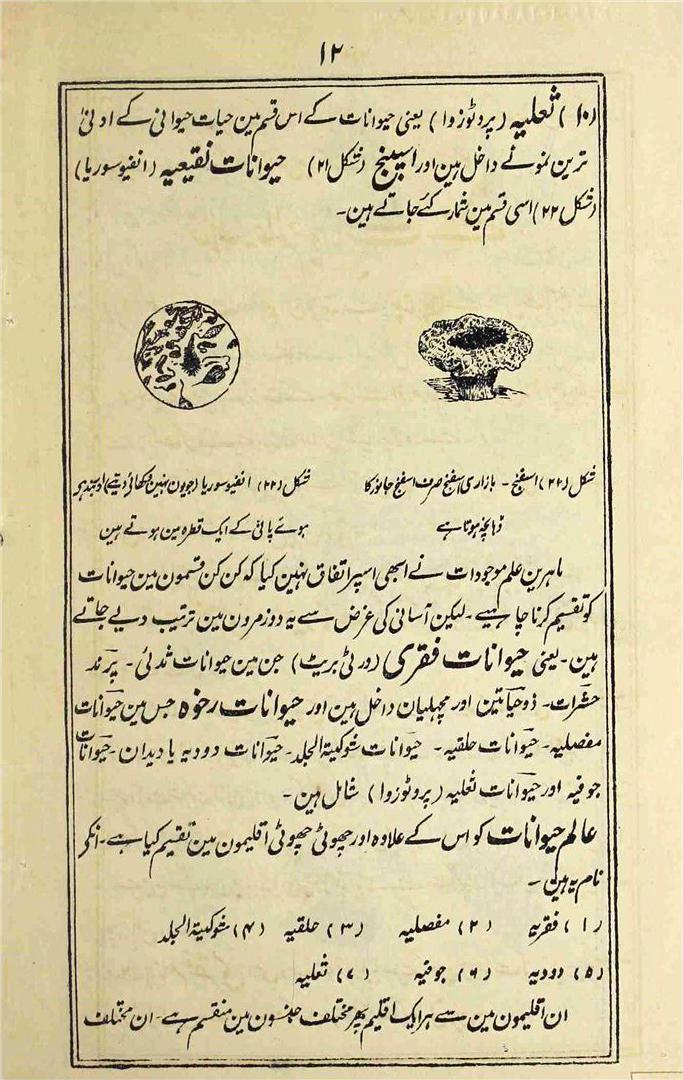 ۱۲
(۱۰) ثعلیہ (پروٹوزوا) یعنی حیوانات کے اس قسم مین حیات حیوانی کے ادنیٰ
ترین نمونے داخل ہین اور اسپینج (شکل ۲۱) حیوانات نقیعیہ (انفیوسوریا)
(شکل ۲۲) اسی قسم مین شمار کئے جاتے ہین۔
شکل (۲۲) اسفنج۔ بازاری اسفنج صرف اسفنج جانور کا
ڈھانچہ ہوتا ہے
شکل (۲۲) انفیوسوریا (جو یون نہین دکھائی دیتے)
ہوئے پانی کے ایک قطرہ مین ہوتے ہین
ماہرین علم موجودات نے ابھی اسپر اتفاق نہین کیا کہ کن کن قسمون مین حیوانات
کو تقسیم کرنا چاہیے۔ لیکن آسانی کی غرض سے یہ دو زمرون مین ترتیب دیے جاتے
ہین۔ یعنی حیوانات فقری (ورٹی بریٹ) جن مین حیوانات ثدئی۔ پرند
حشرات۔ ذوحیاتین اور مچھلیان داخل ہین اور حیوانات رخوہ جس مین حیوانات
مفصلیہ۔ حیوانات حلقیہ۔ حیوانات شوکیۃ الجلد۔ حیوانات دودیہ یا دیدان۔ حیوانات
جوفیہ اور حیوانات ثعلیہ (پروٹوزوا) شامل ہین۔
عالم حیوانات کو اس کے علاوہ اور چھوٹی چھوٹی اقلیمون مین تقسیم کیا ہے۔ انکے
نام یہ ہین۔
(۱) فقریہ (۲) مفصلیہ (۳) حلقیہ (۴) شوکیۃ الجلد
(۵) دودیہ (۶) جوفیہ (۷) ثعلیہ
ان اقلیمون مین سے ہر ایک اقلیم پھر مختلف جنسون مین منقسم ہے۔ ان مختلف